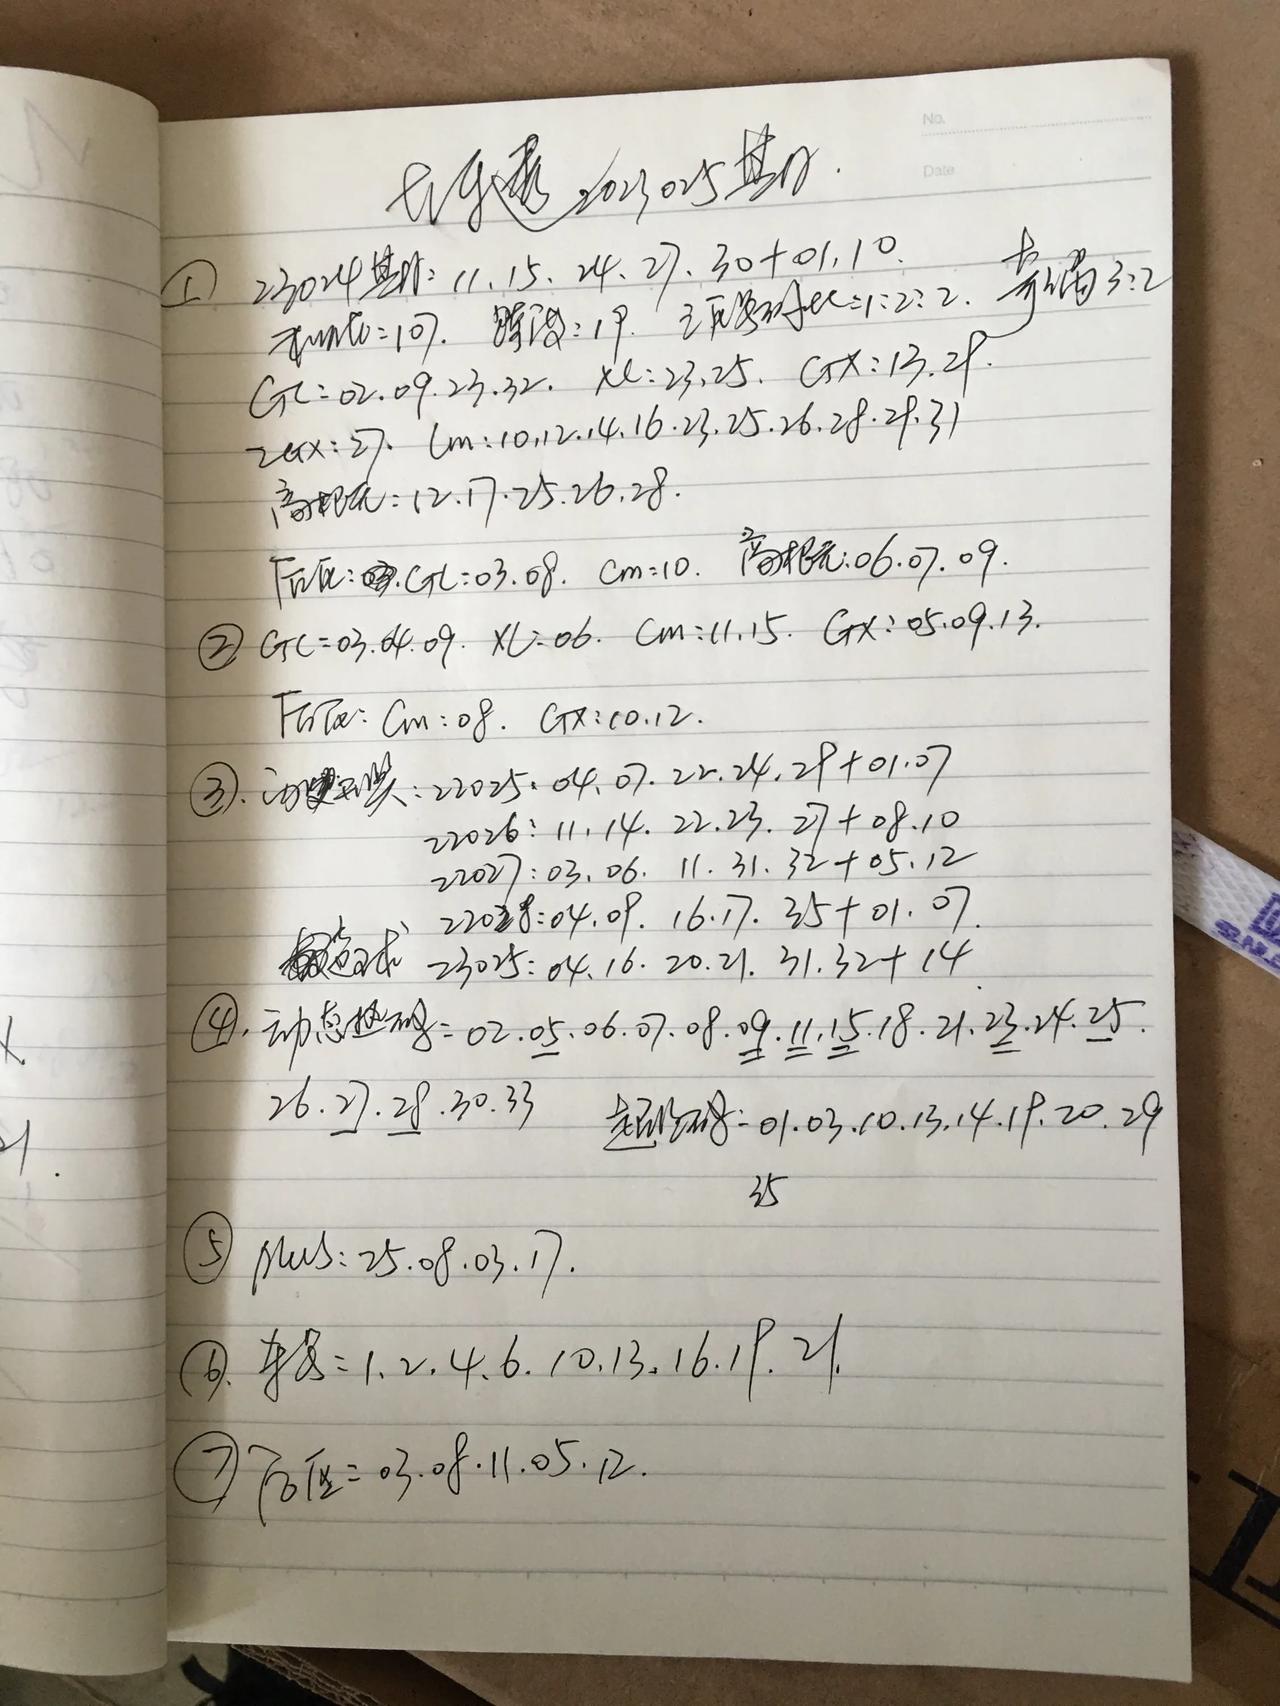 No.
Date
大乐透2023025期
① 23024期: 11.15.24.27.30+01.10.
和值=107. 跨度:19. 三区比:1:2:2. 奇偶3:2
GL=02.09.23.32. XL:23.25. GX:13.29.
2GX:27. Cm:10.12.14.16.23.25.26.28.29.31
12.17.25.26.28.
后区: GL=03.08. Cm=10. 06.07.09.
② GL=03.04.09. XL=06. Cm:11.15. GX:05.09.13.
后区: Cm:08. GX:10.12.
③. 22025: 04.07.22.24.29+01.07
22026: 11.14.22.23.27+08.10
22027: 03.06.11.31.32+05.12
22028: 04.09.16.17.35+01.07.
23025: 04.16.20.21.31.32+14
④. 热码=02.05.06.07.08.09.11.15.18.21.23.24.25.
26.27.28.30.33 码=01.03.10.13.14.19.20.29
35
⑤ 25.08.03.17.
⑥. =1.2.4.6.10.13.16.19.21.
⑦ 后区=03.08.11.05.12.